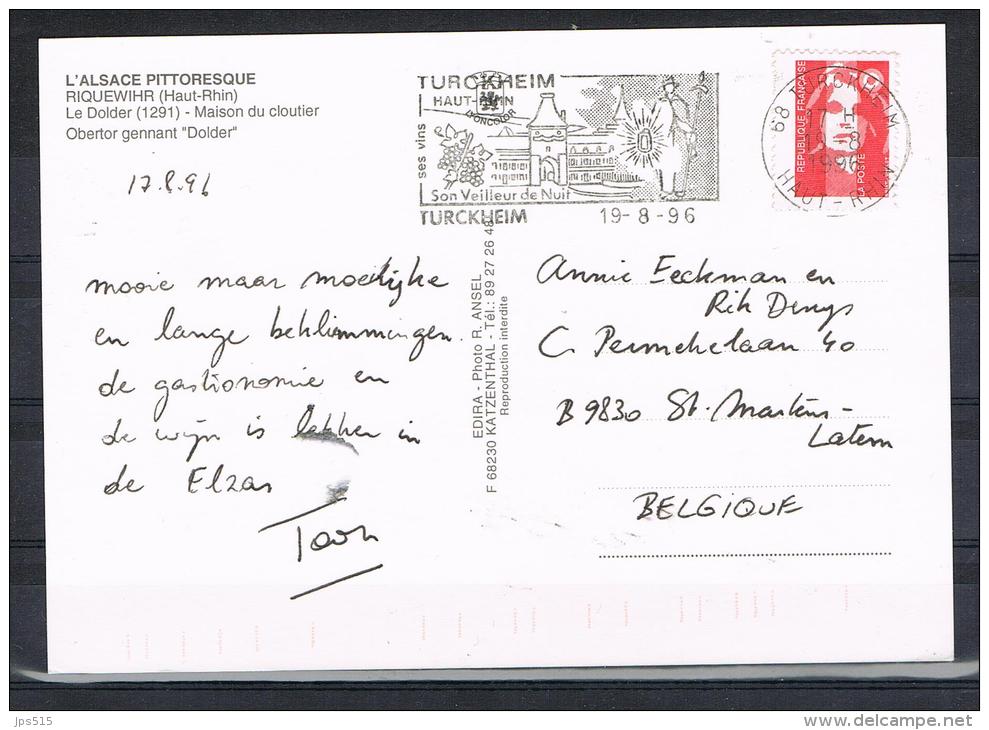 L'ALSACE PITTORESQUE
RIQUEWIHR (Haut-Rhin)
Le Dolder (1291) - Maison du cloutier
Obertor gennant "Dolder"
17.8.96
mooie maar moeilijke
en lange beklimmingen.
de gastronomie en
de wijn is lekker in
de Elzas
Toon
TURCKHEIM
HAUT-RHIN
ses vins
Son Veilleur de Nuit
TURCKHEIM 19-8-96
REPUBLIQUE FRANÇAISE
LA POSTE
68 TURCKHEIM
17 H
19-8
1996
HAUT-RHIN
EDIRA - Photo R. ANSEL
F 68230 KATZENTHAL - Tél.: 89 27 26 48
Reproduction interdite
Annie Eeckman en
Rik Denys
C. Permekelaan 40
B 9830 St. Martens-
Latem
BELGIQUE
jps515
www.delcampe.net